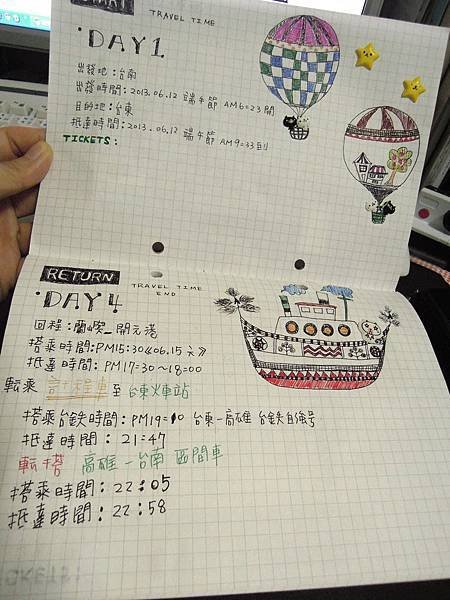 TRAVEL TIME
DAY1
出發地:台南
出發時間:2013.06.12 端午節 AM6=23開
目的地:台東
抵達時間:2013.06.12 端午節 AM9=33到
TICKETS:
RETURN
TRAVEL TIME
END
DAY 4
回程:蘭嶼_開元港
搭乘時間:PM15:30《06.15 六》
抵達時間:PM17=30~18=00
転乘 計程車 至 台東火車站
搭乘台鉄時間:PM19=10 台東-高雄 台鉄自強号
抵達時間:21=47
転搭 高雄-台南 區間車
搭乘時間:22:05
抵達時間:22:58